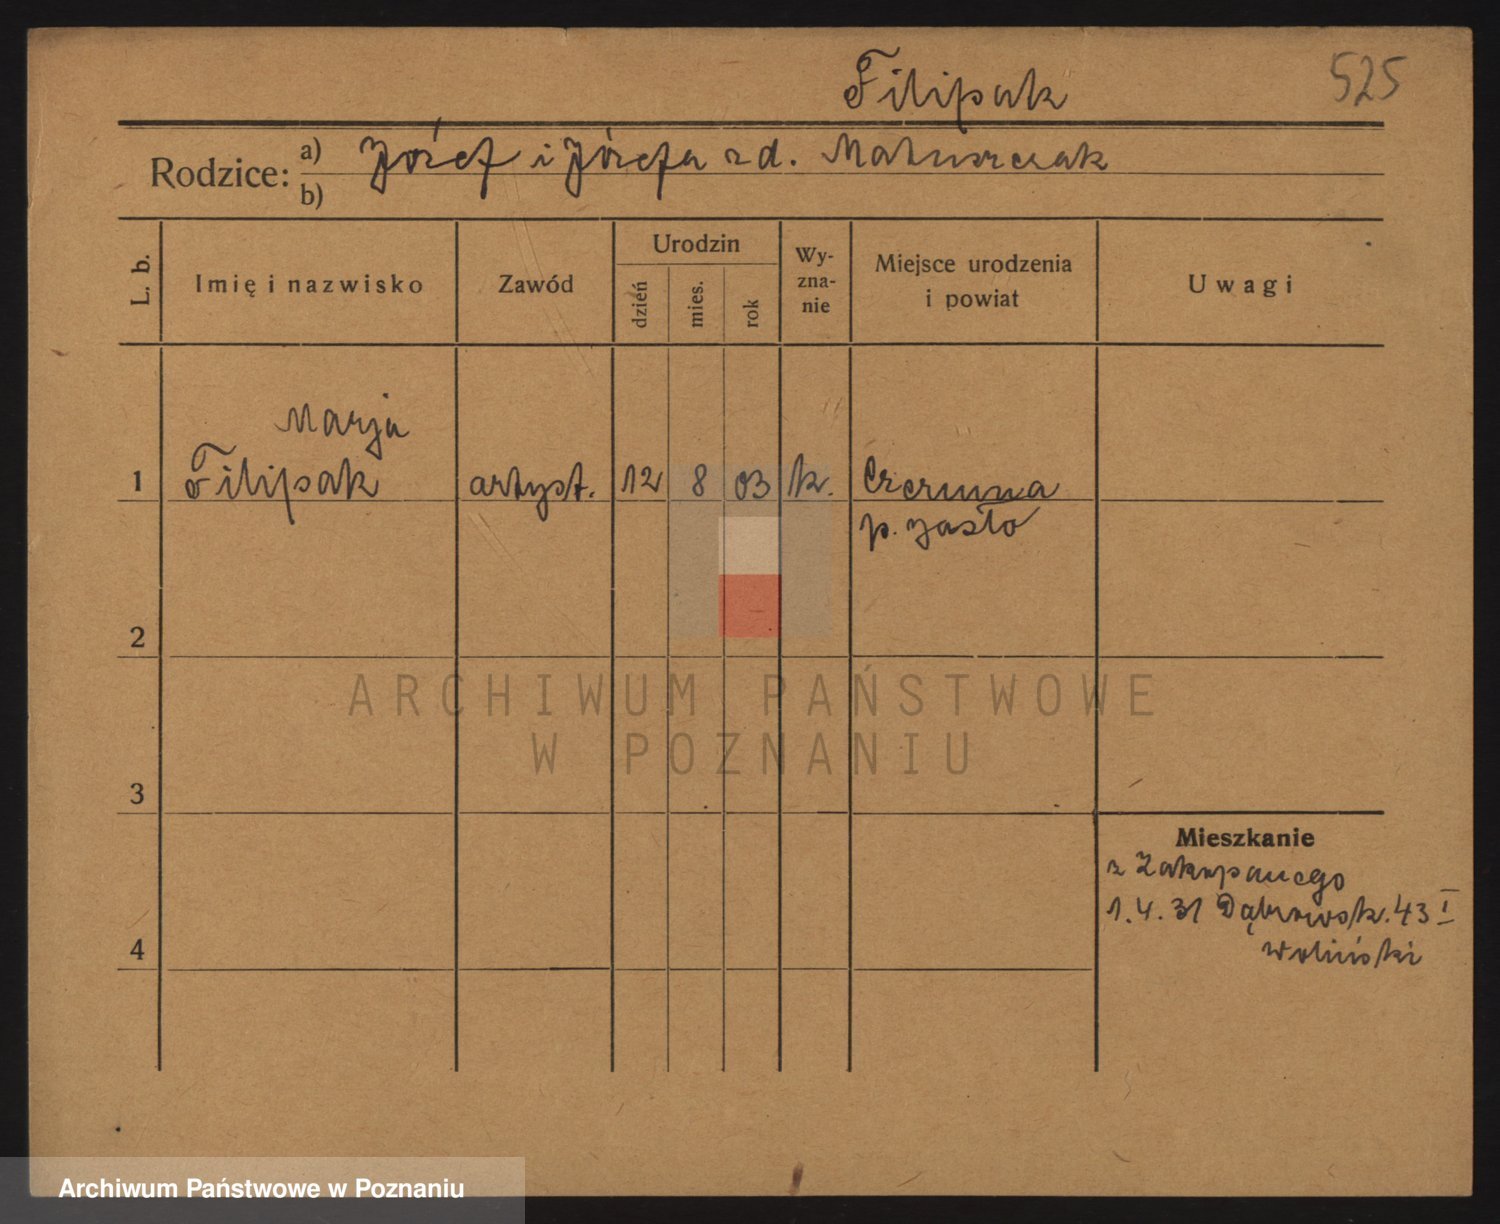 Filipak
525
Rodzice:
a) Józef i Józefa zd. Matuszczak
b)
L. b.
Imię i nazwisko
Zawód
Urodzin
dzień
mies.
rok
Wy-
zna-
nie
Miejsce urodzenia
i powiat
Uwagi
Marja
1 Filipak artyst. 12 8 03 k. Czermna
p. Jasło
2
ARCHIWUM PAŃSTWOWE
W POZNANIU
3
Mieszkanie
z Zakopanego
1.4.31 Dąbrowsk. 43 I
Woliński
4
Archiwum Państwowe w Poznaniu